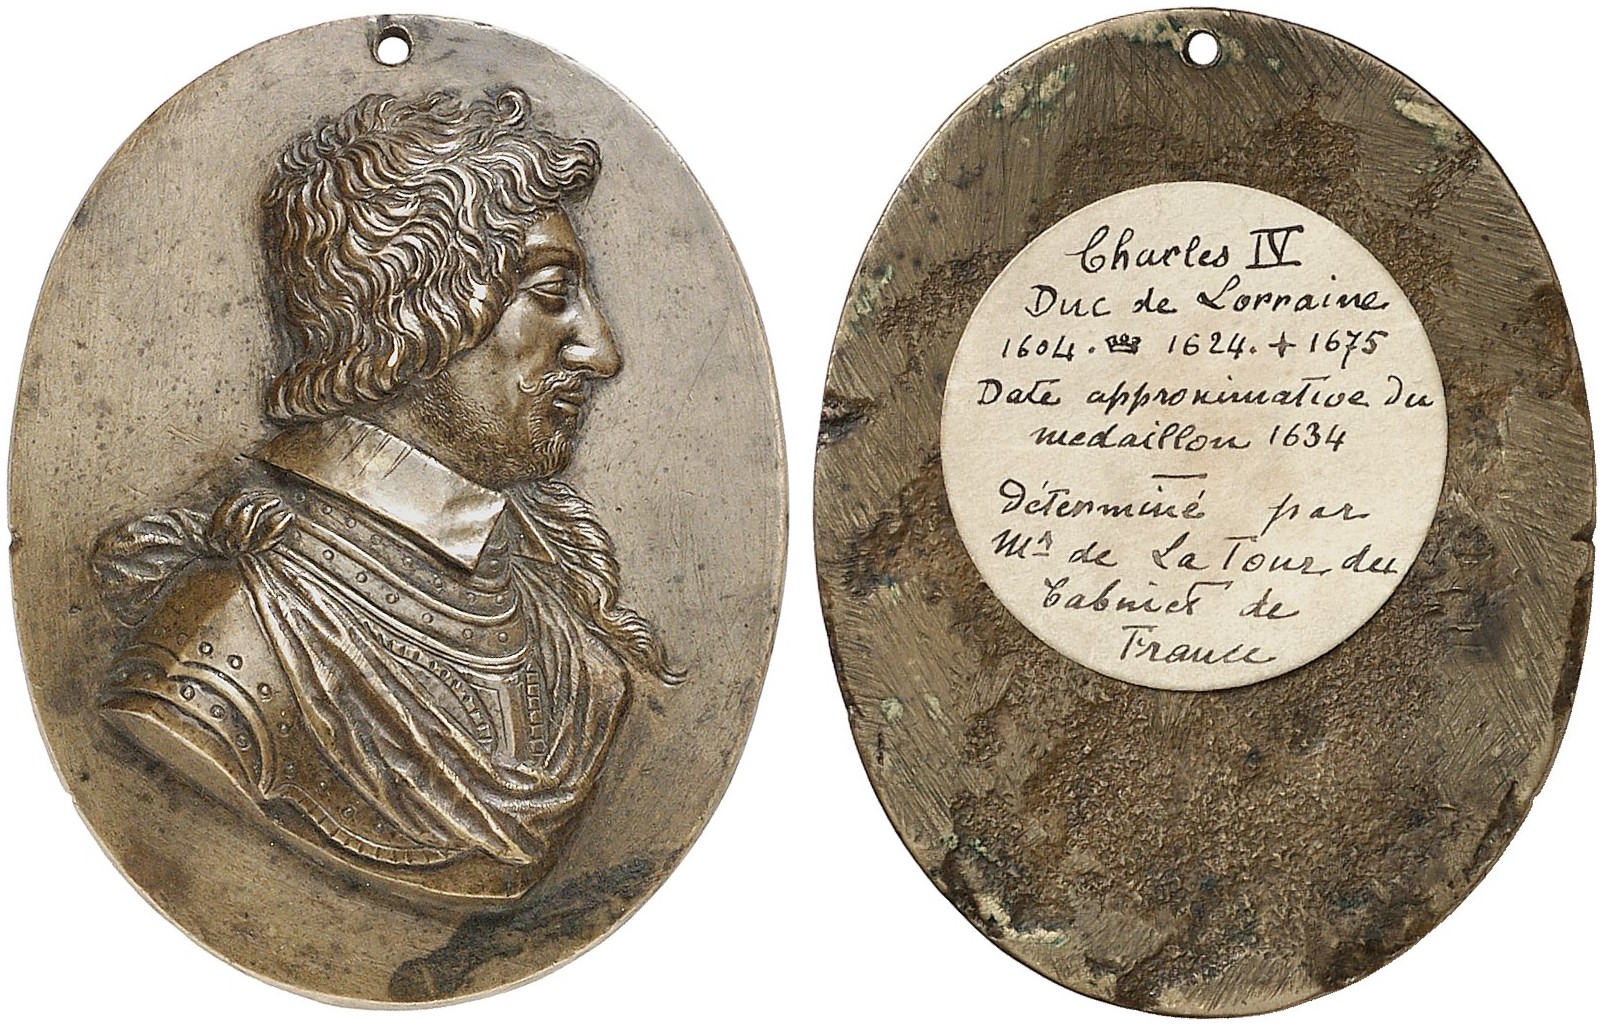 Charles IV
Duc de Lorraine
1604. 1624. + 1675
Date approximative du
medaillon 1634
Déterminé par
Mr de La Tour du
Cabinet de
France